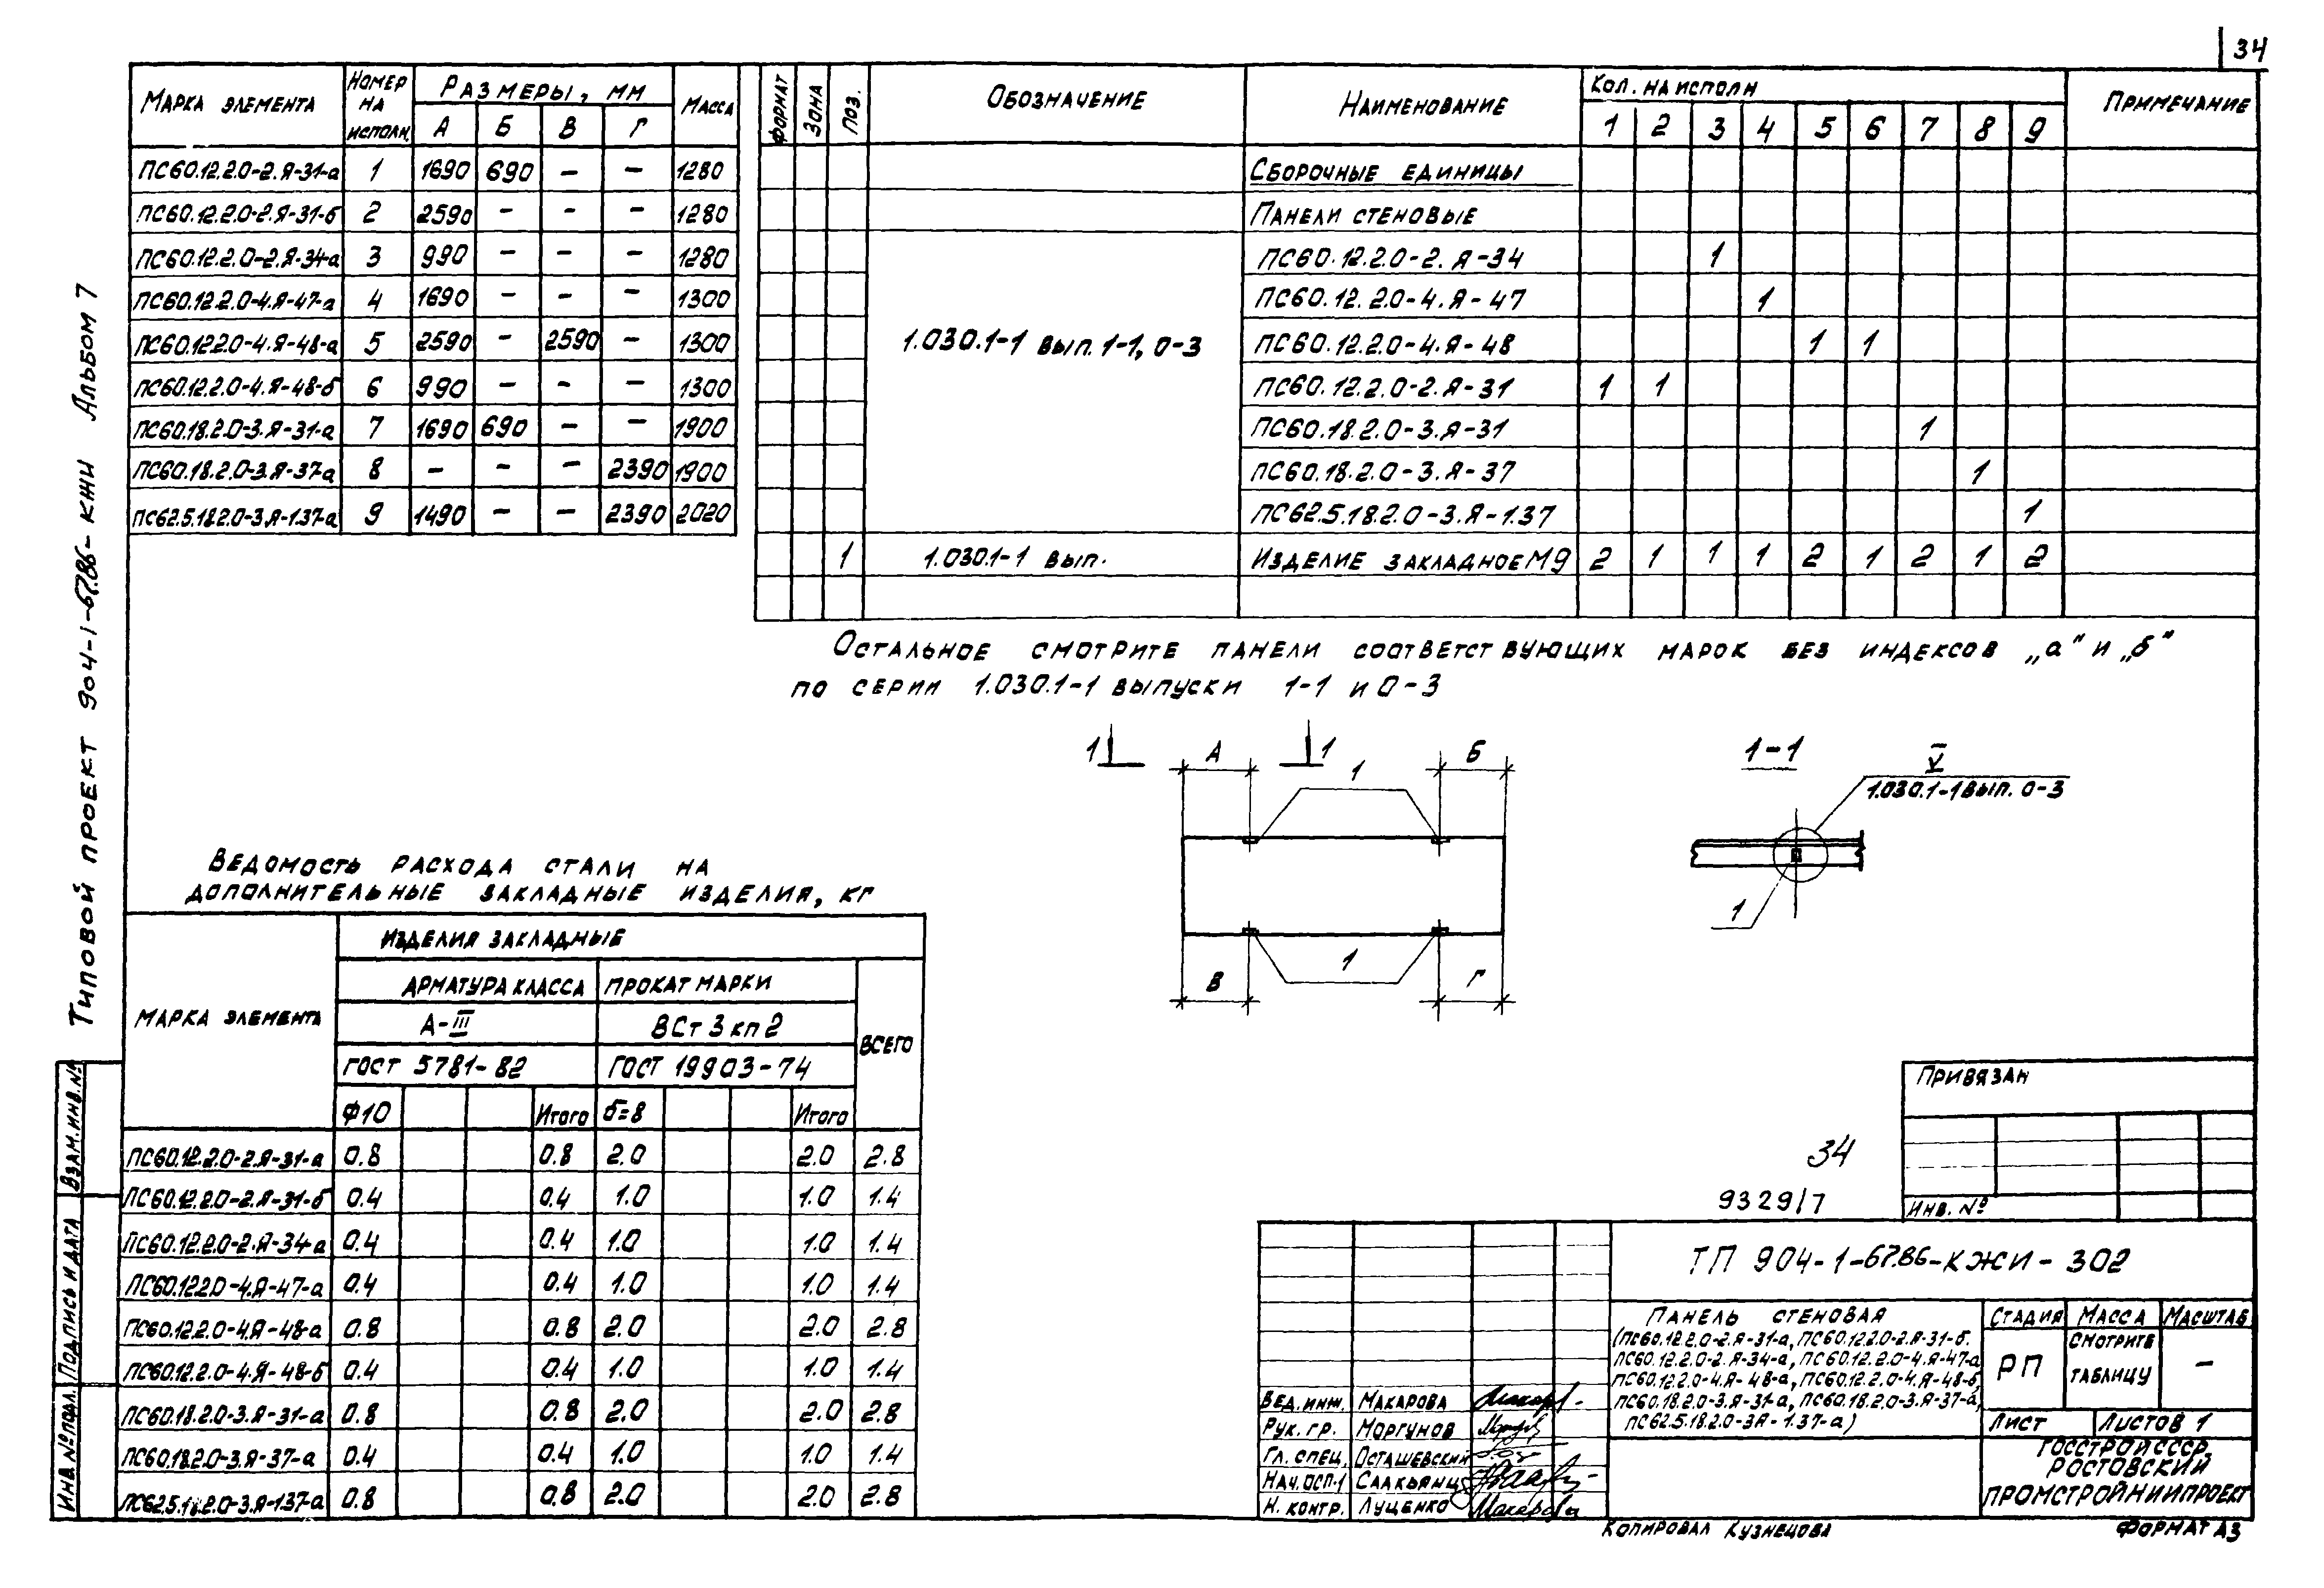 34
Типовой проект 904-1-67.86-КЖИ Альбом 7
Марка элемента | Номер на исполн. | Размеры, мм | Масса
А | Б | В | Г
ПС60.12.2.0-2.Я-31-а | 1 | 1690 | 690 | – | – | 1280
ПС60.12.2.0-2.Я-31-б | 2 | 2590 | – | – | – | 1280
ПС60.12.2.0-2.Я-34-а | 3 | 990 | – | – | – | 1280
ПС60.12.2.0-4.Я-47-а | 4 | 1690 | – | – | – | 1300
ПС60.12.2.0-4.Я-48-а | 5 | 2590 | – | 2590 | – | 1300
ПС60.12.2.0-4.Я-48-б | 6 | 990 | – | – | – | 1300
ПС60.18.2.0-3.Я-31-а | 7 | 1690 | 690 | – | – | 1900
ПС60.18.2.0-3.Я-37-а | 8 | – | – | – | 2390 | 1900
ПС62.5.18.2.0-3.Я-1.37-а | 9 | 1490 | – | – | 2390 | 2020
Формат | Зона | Поз. | Обозначение | Наименование | Кол. на исполн | Примечание
1 | 2 | 3 | 4 | 5 | 6 | 7 | 8 | 9
Сборочные единицы
Панели стеновые
ПС60.12.2.0-2.Я-34 | 1
ПС60.12.2.0-4.Я-47 | 1
1.030.1-1 вып. 1-1, 0-3 | ПС60.12.2.0-4.Я-48 | 1 | 1
ПС60.12.2.0-2.Я-31 | 1 | 1
ПС60.18.2.0-3.Я-31 | 1
ПС60.18.2.0-3.Я-37 | 1
ПС62.5.18.2.0-3.Я-1.37 | 1
1 | 1.030.1-1 вып. | Изделие закладное М9 | 2 | 1 | 1 | 1 | 2 | 1 | 2 | 1 | 2
Остальное смотрите панели соответствующих марок без индексов „а" и „б"
по серии 1.030.1-1 выпуски 1-1 и 0-3
1 А 1 1 Б
1-1
V
1.030.1-1 вып. 0-3
1
В 1 Г
Ведомость расхода стали на
дополнительные закладные изделия, кг
Марка элемента | Изделия закладные
Арматура класса | Прокат марки | Всего
А-III | ВСт3кп2
ГОСТ 5781-82 | ГОСТ 19903-74
Ф10 | Итого | б=8 | Итого
ПС60.12.2.0-2.Я-31-а | 0.8 | 0.8 | 2.0 | 2.0 | 2.8
ПС60.12.2.0-2.Я-31-б | 0.4 | 0.4 | 1.0 | 1.0 | 1.4
ПС60.12.2.0-2.Я-34-а | 0.4 | 0.4 | 1.0 | 1.0 | 1.4
ПС60.12.2.0-4.Я-47-а | 0.4 | 0.4 | 1.0 | 1.0 | 1.4
ПС60.12.2.0-4.Я-48-а | 0.8 | 0.8 | 2.0 | 2.0 | 2.8
ПС60.12.2.0-4.Я-48-б | 0.4 | 0.4 | 1.0 | 1.0 | 1.4
ПС60.18.2.0-3.Я-31-а | 0.8 | 0.8 | 2.0 | 2.0 | 2.8
ПС60.18.2.0-3.Я-37-а | 0.4 | 0.4 | 1.0 | 1.0 | 1.4
ПС62.5.18.2.0-3.Я-1.37-а | 0.8 | 0.8 | 2.0 | 2.0 | 2.8
Взам. инв. №
Подпись и дата
Инв. № подл.
Привязан
Инв. №
34
9329/7
ТП 904-1-67.86-КЖИ-302
Панель стеновая
(ПС60.12.2.0-2.Я-31-а, ПС60.12.2.0-2.Я-31-б.
ПС60.12.2.0-2.Я-34-а, ПС60.12.2.0-4.Я-47-а
ПС60.12.2.0-4.Я-48-а, ПС60.12.2.0-4.Я-48-б,
ПС60.18.2.0-3.Я-31-а, ПС60.18.2.0-3.Я-37-а,
ПС62.5.18.2.0-3Я-1.37-а)
Стадия | Масса | Масштаб
РП | смотрите таблицу | –
Лист | Листов 1
Госстрой СССР.
Ростовский
Промстройниипроект
Вед. инж. Макарова
Рук. гр. Моргунов
Гл. спец. Осташевский
Нач. ОСП-1 Саакьянц
Н. контр. Луценко
Копировал Кузнецова
Формат А3